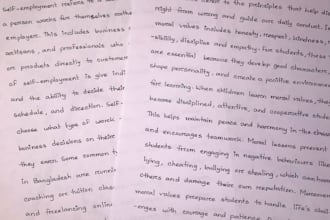 Self-employment refers to a
a person works for themselves rathe
employer. This includes business
artisans, and professionals who
or products directly to customers
of self-employment is give indi
and the ability to decide their
schedule, and direction. Self-
choose what type of work
business decisions on their
they earn. Some common t
in Bangladesh are runnin
coaching or tuition class
and freelancing online
is the principles that help di
right from wrong and guide our daily conduct. I
moral values includes honesty, respect, kindness,
-sibility, discipline and empathy. For students, these
are essential because they develop good character
shape personality, and create a positive environment
for learning. When children learn moral values, the
become disciplined, attentive, and cooperative stude
This helps maintain peace and harmony in the class
and encourages teamwork. Moral lessons prevent
students from engaging in negative behaviours like
lying, cheating, bullying or stealing, which can ha
others and damage their own reputation. Moreover
moral values prepare students to handle life's chal
-enges with courage and patience.